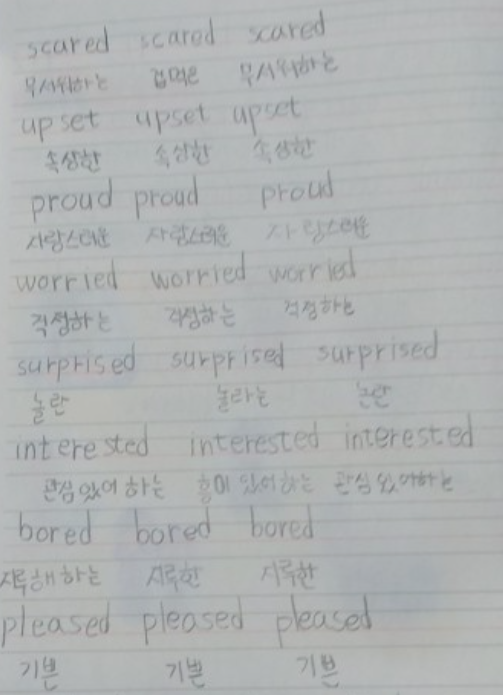 scared scared scared
무서워하는 겁먹은 무서워하는
upset upset upset
속상한 속상한 속상한
proud proud proud
자랑스러운 자랑스러운 자랑스러운
worried worried worried
걱정하는 걱정하는 걱정하는
surprised surprised surprised
놀란 놀라는 논란
interested interested interested
관심있어 하는 흥미 있어하는 관심있어하는
bored bored bored
지루해하는 지루한 지루한
pleased pleased pleased
기쁜 기쁜 기쁜